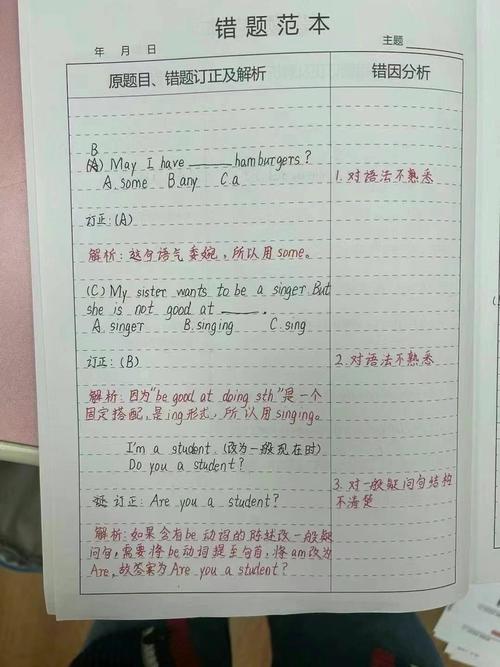 错题范本
年 月 日 主题
原题目、错题订正及解析 错因分析
B
(A) May I have ______ hamburgers?
A. some B. any C. a
1. 对语法不熟悉
订正:(A)
解析:这句语气委婉,所以用some。
(C) My sister wants to be a singer. But
she is not good at ______.
A. singer B. singing C. sing
订正:(B)
2. 对语法不熟悉
解析:因为"be good at doing sth"是一个
固定搭配,是ing形式,所以用singing。
I'm a student. (改为一般现在时)
Do you a student?
3. 对一般疑问句结构
不清楚
订正: Are you a student?
解析:如果含有be动词的陈述改一般疑
问句,需要将be动词提至句首,将am改为
Are,故答案为Are you a student?